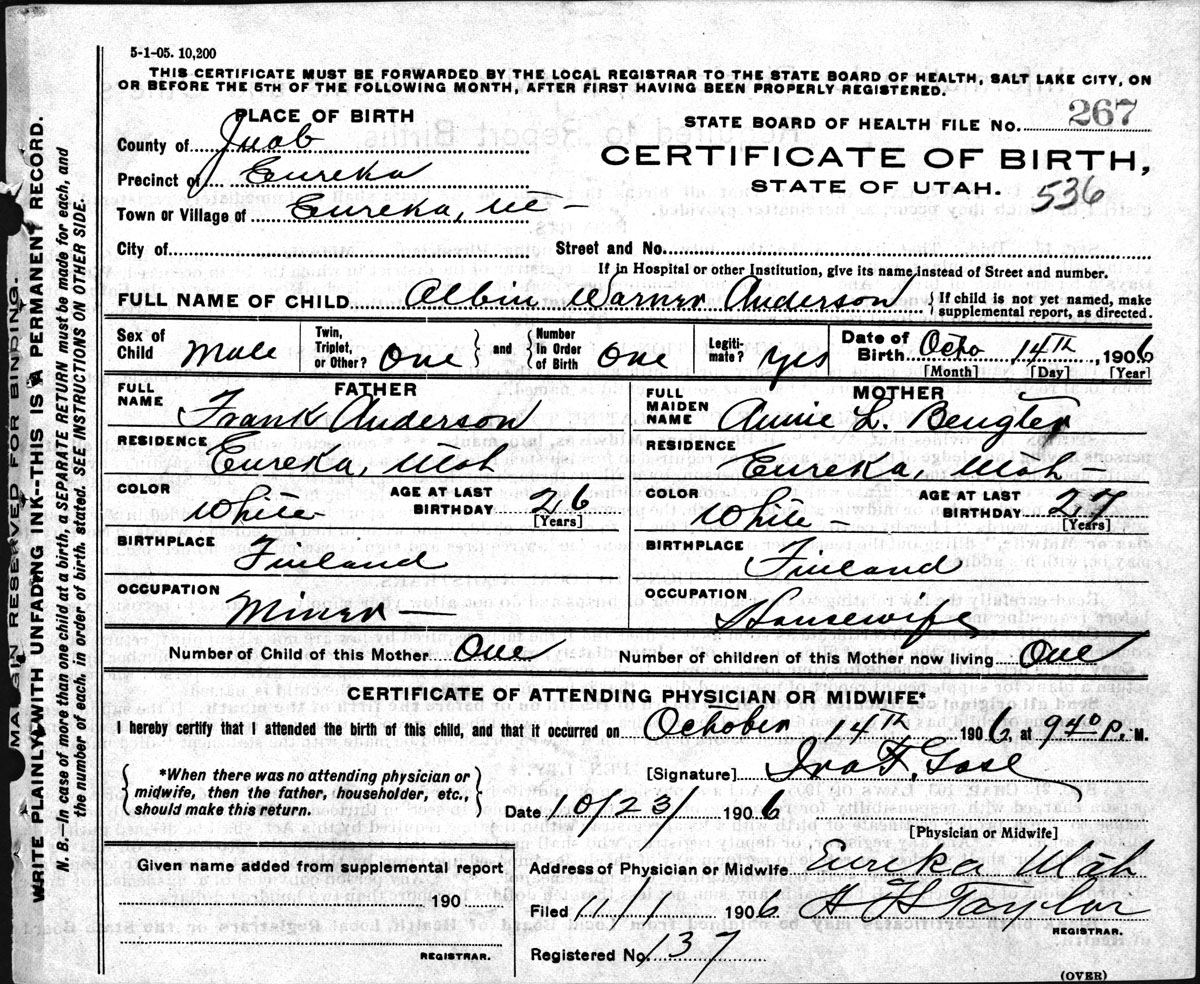 5-1-05. 10,200
THIS CERTIFICATE MUST BE FORWARDED BY THE LOCAL REGISTRAR TO THE STATE BOARD OF HEALTH, SALT LAKE CITY, ON
OR BEFORE THE 5TH OF THE FOLLOWING MONTH, AFTER FIRST HAVING BEEN PROPERLY REGISTERED.
PLACE OF BIRTH
County of Juab
Precinct of Eureka
Town or Village of Eureka, Ut
City of
STATE BOARD OF HEALTH FILE No. 267
CERTIFICATE OF BIRTH,
STATE OF UTAH.
536
Street and No.
If in Hospital or other Institution, give its name instead of Street and number.
FULL NAME OF CHILD Albin Warner Anderson { If child is not yet named, make supplemental report, as directed.
Sex of Child Male Twin, Triplet, or Other? One } and { Number in Order of Birth One Legiti- mate? Yes Date of Birth Octo 14th, 1906
[Month] [Day] [Year]
FATHER
FULL NAME Frank Anderson
RESIDENCE Eureka, Utah
COLOR White AGE AT LAST BIRTHDAY 26 [Years]
BIRTHPLACE Finland
OCCUPATION Miner
MOTHER
FULL MAIDEN NAME Annie L.
RESIDENCE Eureka, Utah
COLOR White AGE AT LAST BIRTHDAY 27 [Years]
BIRTHPLACE Finland
OCCUPATION Housewife
Number of Child of this Mother One Number of children of this Mother now living One
CERTIFICATE OF ATTENDING PHYSICIAN OR MIDWIFE*
I hereby certify that I attended the birth of this child, and that it occurred on October 14th 1906, at 940 P. M.
{ *When there was no attending physician or midwife, then the father, householder, etc., should make this return. }
[Signature] Ira F.
Date 10/23/ 1906
[Physician or Midwife]
Given name added from supplemental report
190
REGISTRAR.
Address of Physician or Midwife Eureka Utah
Filed 11/1 1906 Taylor
REGISTRAR.
Registered No. 137
(OVER)
MARGIN RESERVED FOR BINDING.
WRITE PLAINLY WITH UNFADING INK--THIS IS A PERMANENT RECORD.
N. B.—In case of more than one child at a birth, a SEPARATE RETURN must be made for each, and
the number of each, in order of birth, stated. SEE INSTRUCTIONS ON OTHER SIDE.